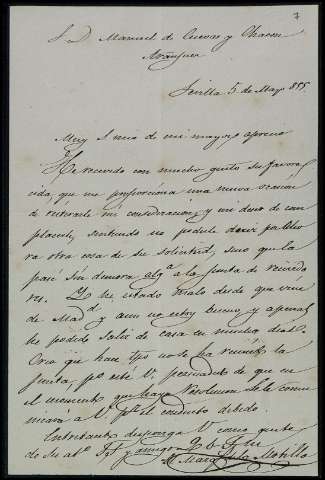 7
S.r D. Manuel de Cuevas y Chacon
Aranjuez
Sevilla 5 de Mayo 855.
Muy S. mio de mi mayor aprecio
He recivido con mucho gusto su favore
cida, que me proporciona una nueva ocasion
de reiterarle mi consideracion, y mi deseo de com
placerle, sintiendo no poderle decir pr. aho
ra otra cosa de su solicitud, sino que la
pasé sin demora alg.a a la Junta de
Yo he estado malo desde que vine
de Mad.d y aun no estoy bueno, y apenas
he podido salir de casa en muchos dias.
Creo que hace tpo. no se ha reunido la
Junta, p.o esté V. persuadido de que en
el momento que haya resolucion se le comu
nicará a V. por el conducto debido.
Entretanto disponga V. como guste
de su at.o S. S. y amigo Q. B. S. M.
El Marq.s de la Motilla